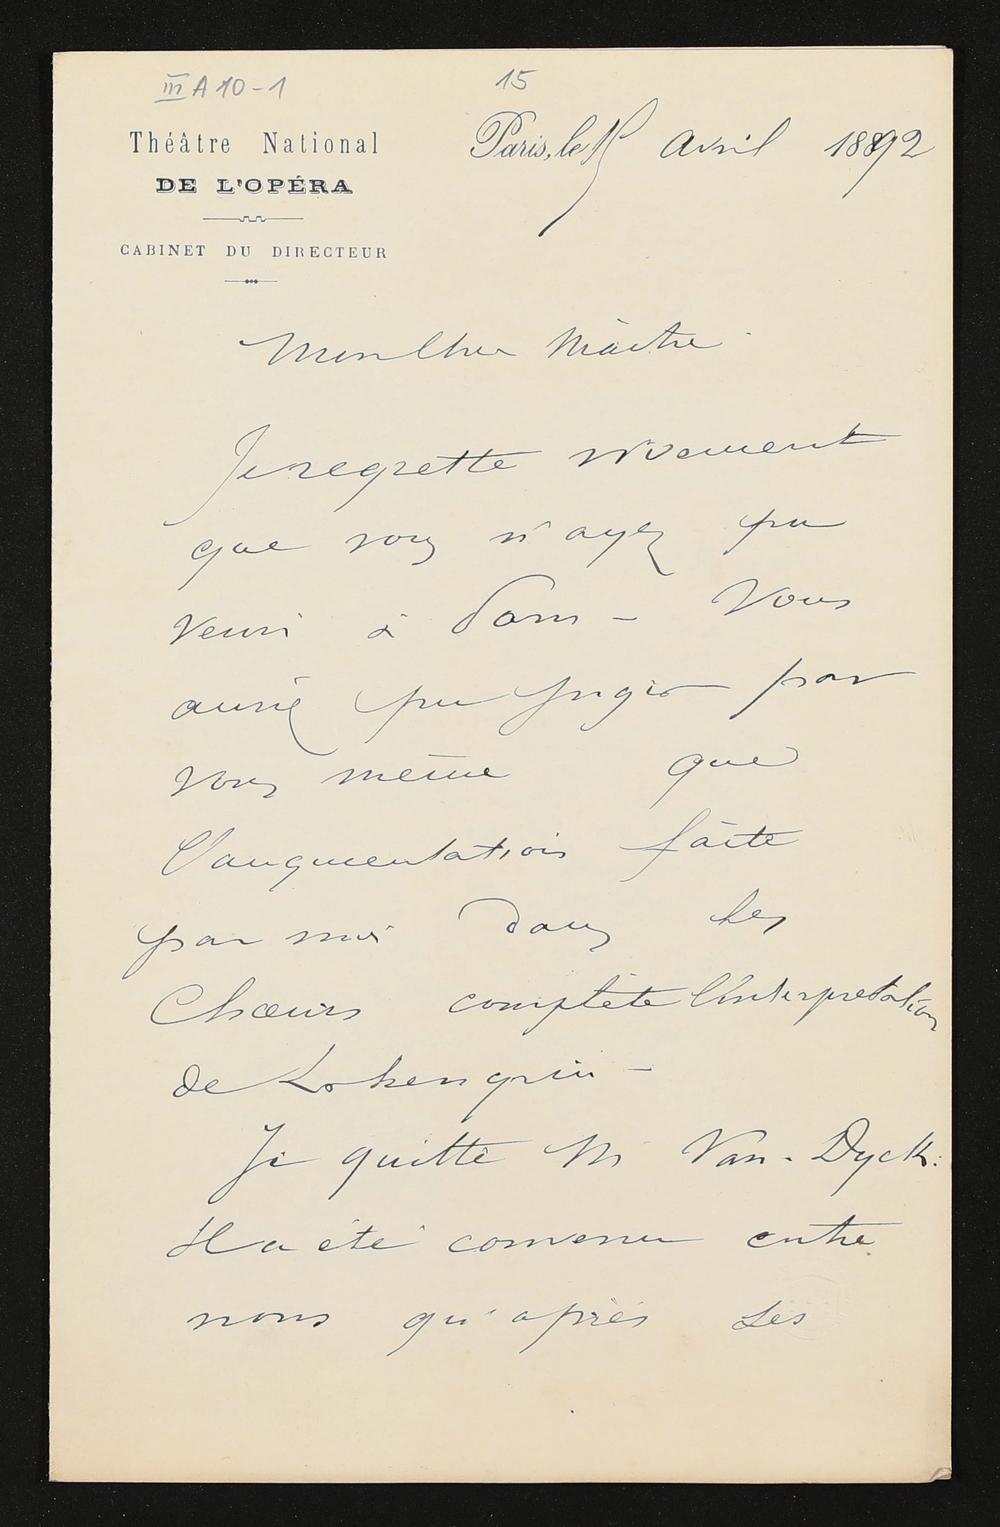 III A 10-1
15
Théâtre National
DE L'OPÉRA
CABINET DU DIRECTEUR
Paris, le 15 avril 1892
Mon Cher Maître
Je regrette vivement
que vous n'ayez pu
venir à Paris – Vous
auriez pu juger par
vous même que
l'augmentation faite
par moi dans les
Chœurs complète l'interprétation
de Lohengrin –
Je quitte M Van-Dyck.
Il a été convenu entre
nous qu'après ses